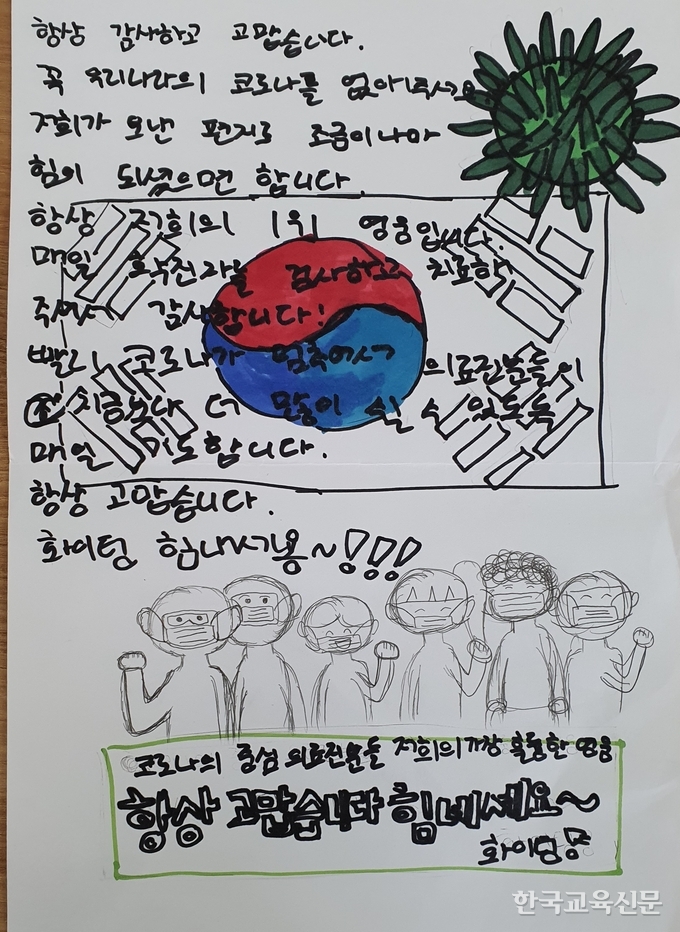 항상 감사하고 고맙습니다.
꼭 우리나라의 코로나를 없애주세요
저희가 보낸 편지로 조금이나마
힘이 되셨으면 합니다.
항상 저희의 1위 영웅입니다.
매일 확진자를 검사하고 치료해
주셔서 감사합니다!
빨리 코로나가 멈추어서 의료진분들이
지금보다 더 많이 쉴 수 있도록
매일 기도합니다.
항상 고맙습니다.
화이팅 힘내세용~!!!
코로나의 중심 의료진분들 저희의 가장 훌륭한 영웅
항상 고맙습니다 힘내세요~
화이팅
한국교육신문